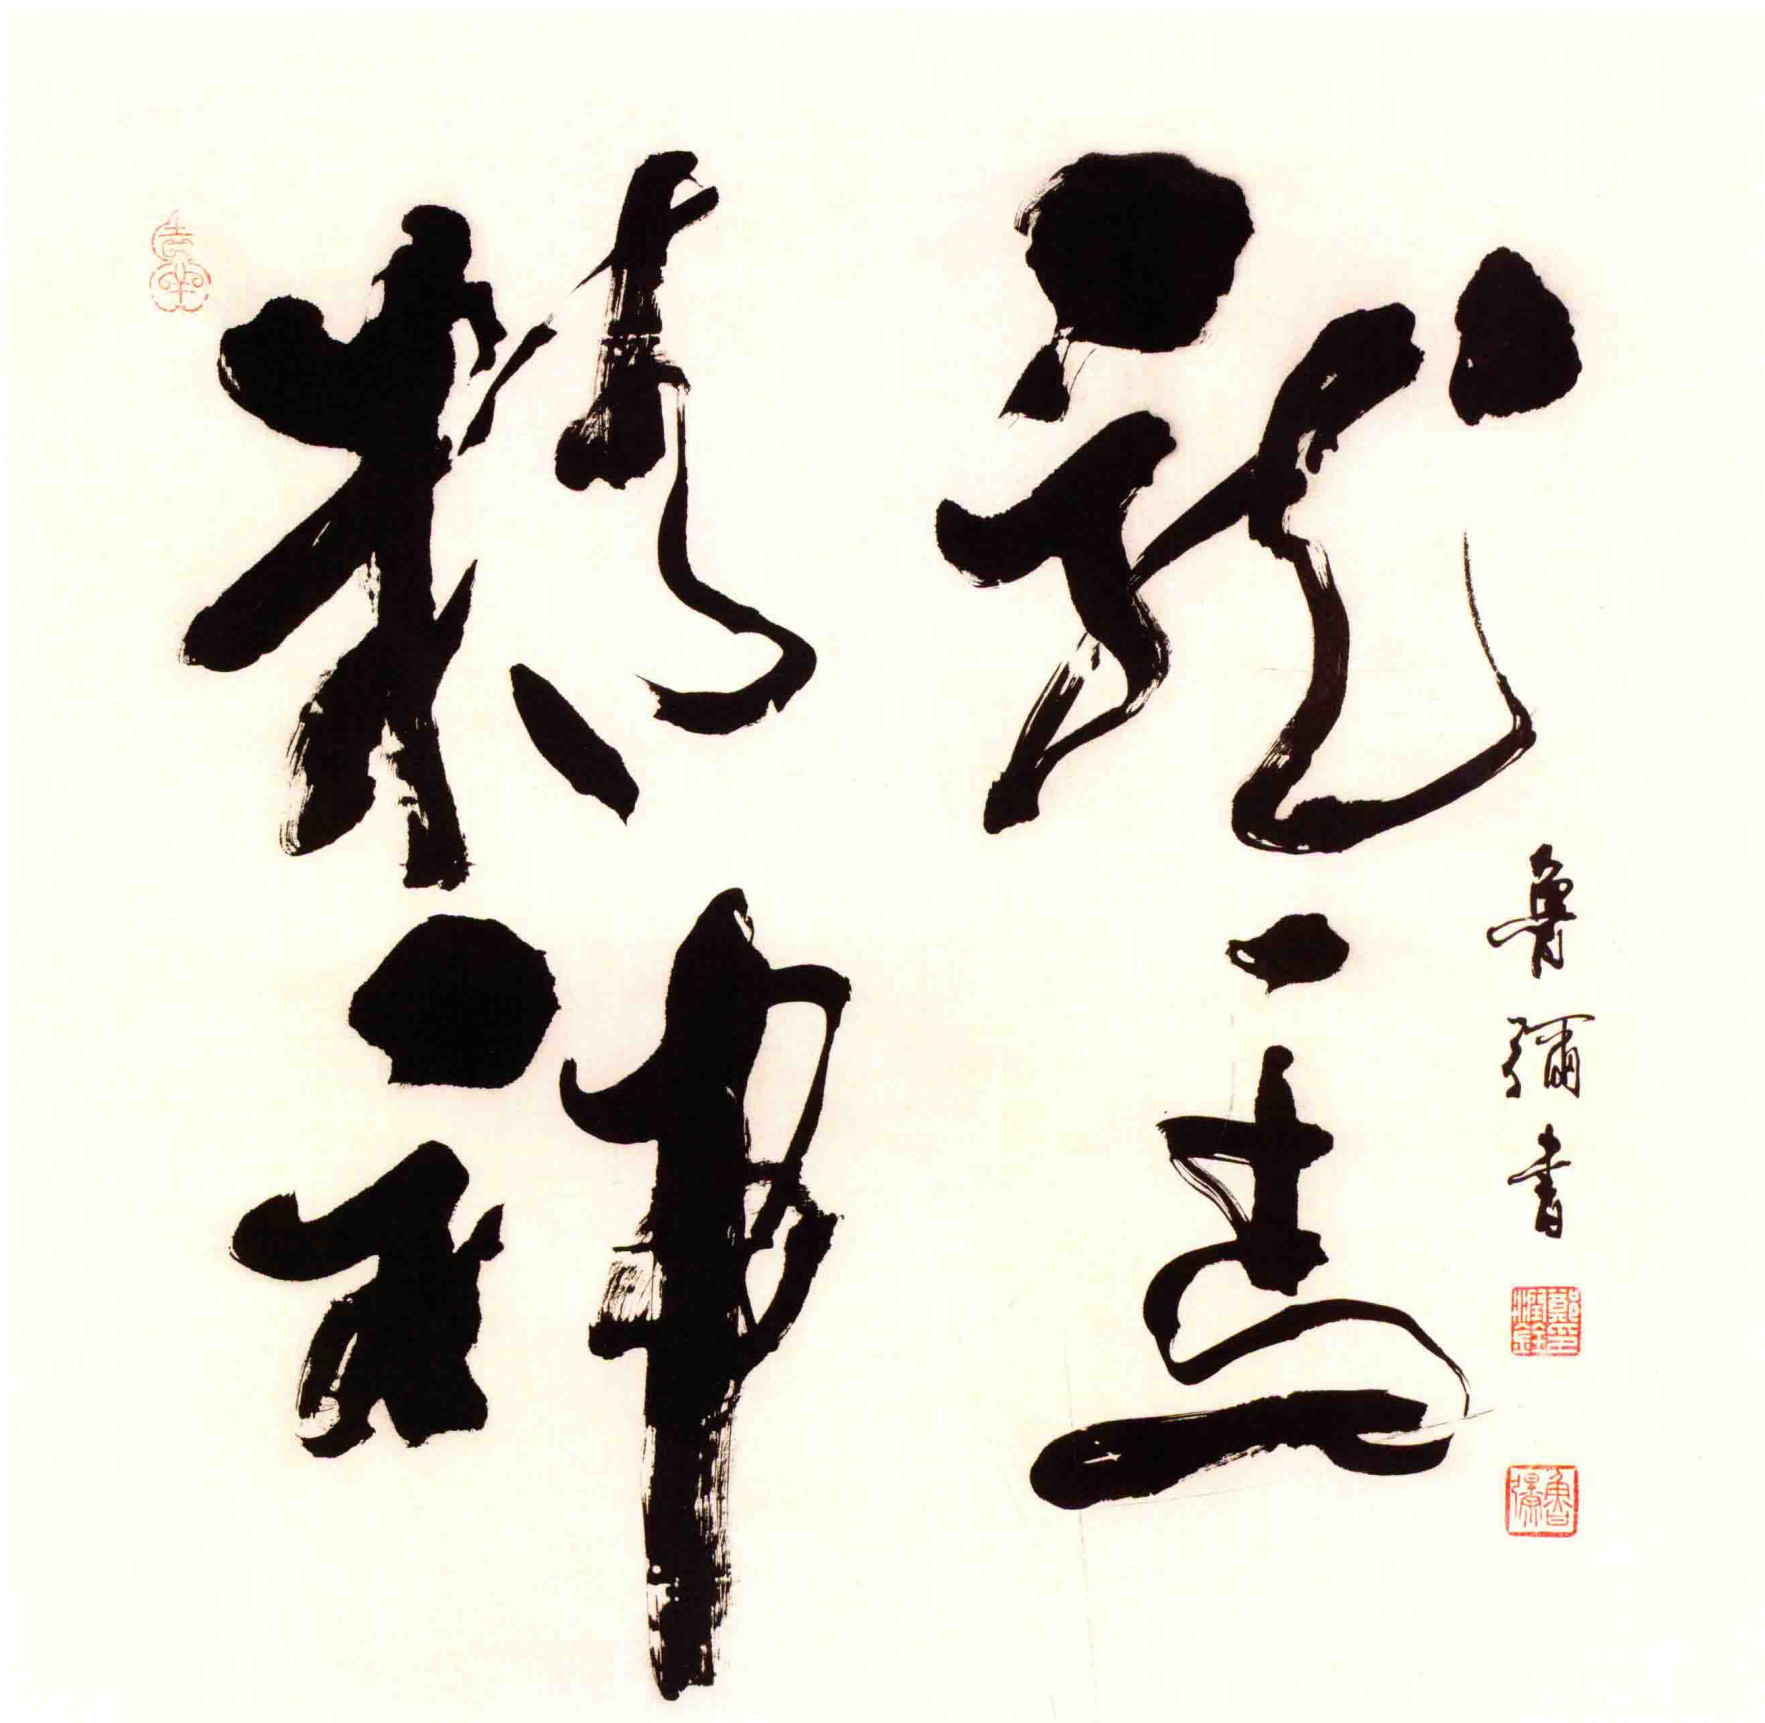 龍馬
精神
魯彌書